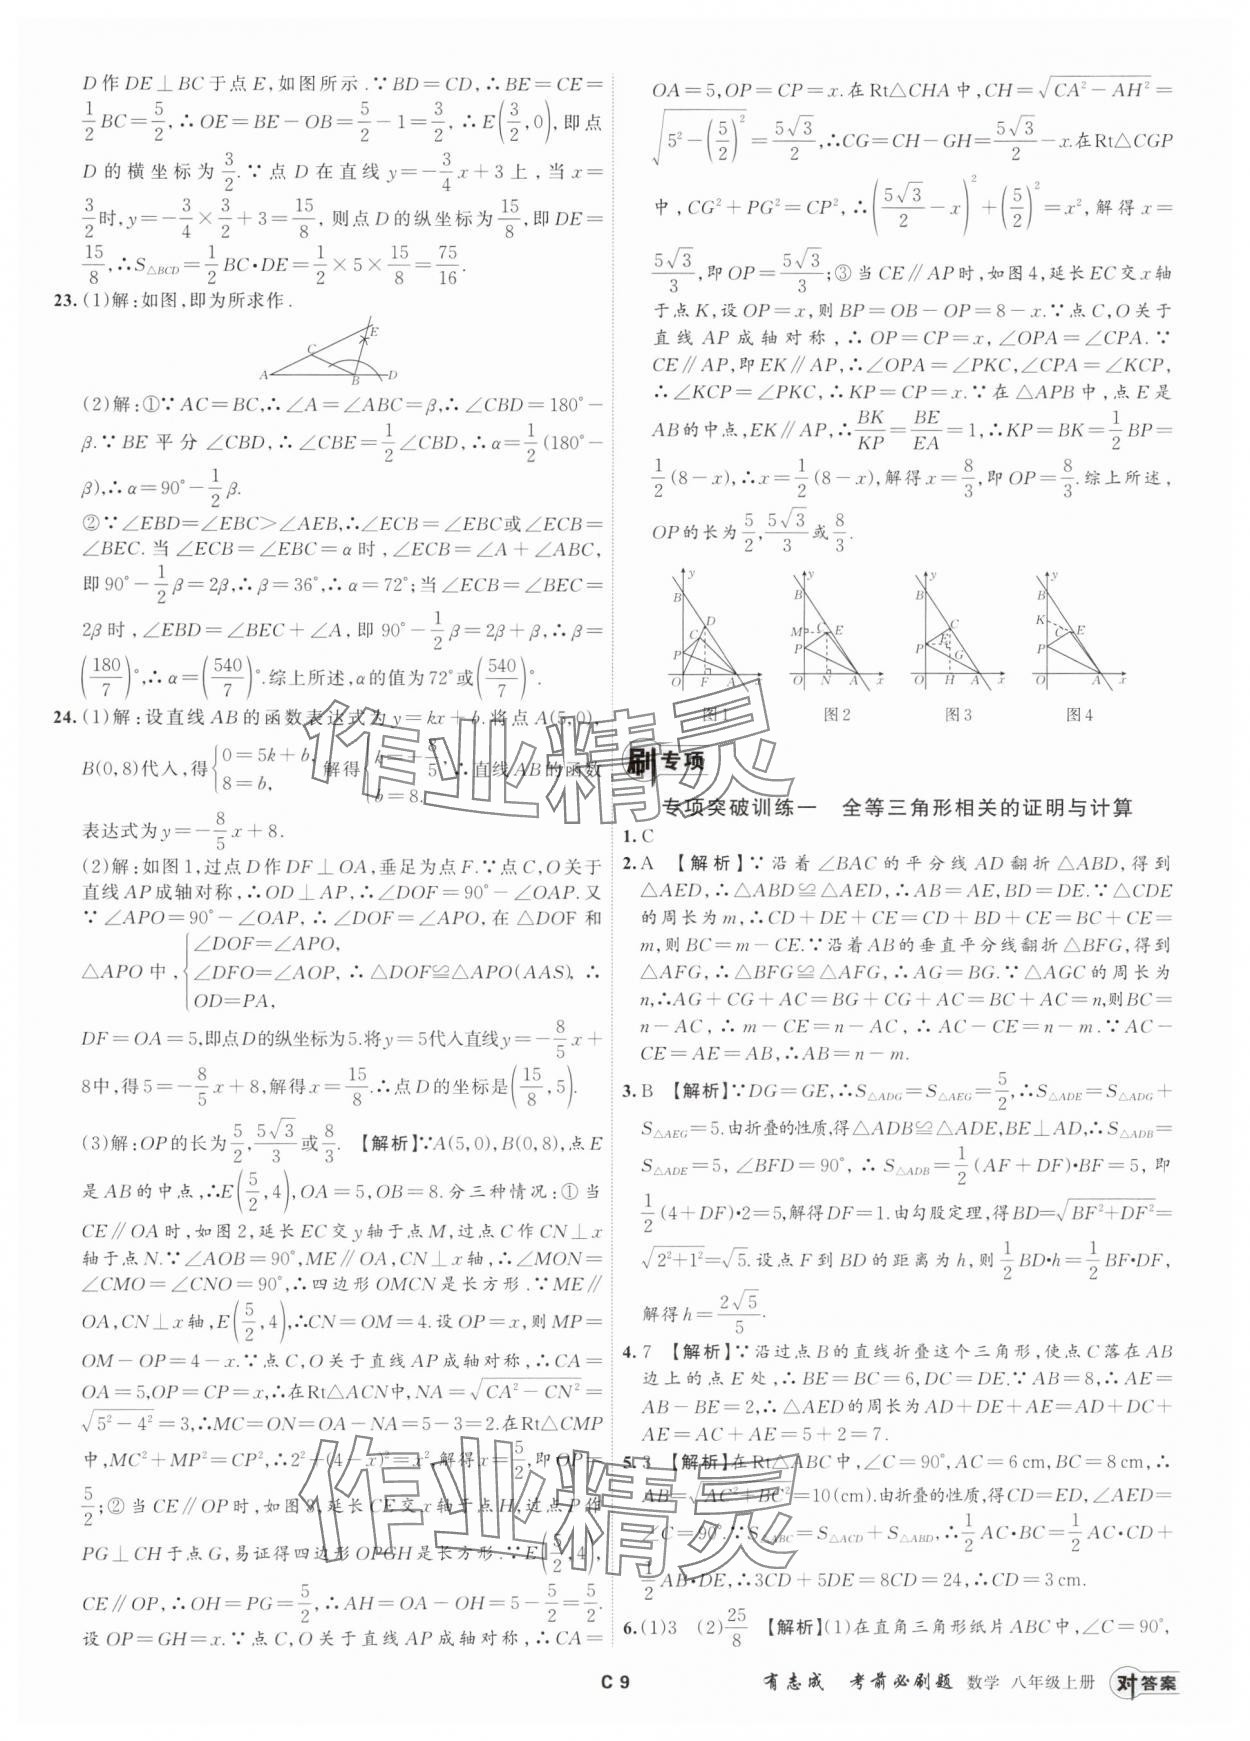 D作DE⊥BC于点E,如图所示.∵BD=CD,∴BE=CE=
1/2 BC=5/2,∴OE=BE-OB=5/2-1=3/2,∴E(3/2,0),即点
D的横坐标为3/2.∵点D在直线y=-3/4 x+3上,当x=
3/2时,y=-3/4×3/2+3=15/8,则点D的纵坐标为15/8,即DE=
15/8,∴S△BCD=1/2 BC·DE=1/2×5×15/8=75/16.
23.(1)解:如图,即为所求作.
A B C D E
(2)解:①∵AC=BC,∴∠A=∠ABC=β,∴∠CBD=180°-
β.∵BE平分∠CBD,∴∠CBE=1/2∠CBD,∴α=1/2(180°-
β),∴α=90°-1/2 β.
②∵∠EBD=∠EBC>∠AEB,∴∠ECB=∠EBC或∠ECB=
∠BEC.当∠ECB=∠EBC=α时,∠ECB=∠A+∠ABC,
即90°-1/2 β=2β,∴β=36°,∴α=72°;当∠ECB=∠BEC=
2β时,∠EBD=∠BEC+∠A,即90°-1/2 β=2β+β,∴β=
(180/7)°,∴α=(540/7)°.综上所述,α的值为72°或(540/7)°.
24.(1)解:设直线AB的函数表达式为y=kx+b.将点A(5,0),
B(0,8)代入,得{0=5k+b, 8=b, 解得{k=-8/5, b=8. ∴直线AB的函数
表达式为y=-8/5 x+8.
(2)解:如图1,过点D作DF⊥OA,垂足为点F.∵点C,O关于
直线AP成轴对称,∴OD⊥AP,∴∠DOF=90°-∠OAP.又
∵∠APO=90°-∠OAP,∴∠DOF=∠APO,在△DOF和
△APO中,{∠DOF=∠APO, ∠DFO=∠AOP, OD=PA, ∴△DOF≌△APO(AAS),∴
DF=OA=5,即点D的纵坐标为5.将y=5代入直线y=-8/5 x+
8中,得5=-8/5 x+8,解得x=15/8.∴点D的坐标是(15/8,5).
(3)解:OP的长为5/2,5√3/3或8/3. 【解析】∵A(5,0),B(0,8),点E
是AB的中点,∴E(5/2,4),OA=5,OB=8.分三种情况:①当
CE∥OA时,如图2,延长EC交y轴于点M,过点C作CN⊥x
轴于点N.∵∠AOB=90°,ME∥OA,CN⊥x轴,∴∠MON=
∠CMO=∠CNO=90°,∴四边形OMCN是长方形.∵ME∥
OA,CN⊥x轴,E(5/2,4),∴CN=OM=4.设OP=x,则MP=
OM-OP=4-x.∵点C,O关于直线AP成轴对称,∴CA=
OA=5,OP=CP=x,∴在Rt△ACN中,NA=√(CA²-CN²)=
√(5²-4²)=3,∴MC=ON=OA-NA=5-3=2.在Rt△CMP
中,MC²+MP²=CP²,∴2²+(4-x)²=x²,解得x=5/2,即OP=
5/2;②当CE∥OP时,如图3,延长EC交x轴于点H,过点P作
PG⊥CH于点G,易证得四边形OPGH是长方形.∵E(5/2,4),
CE∥OP,∴OH=PG=5/2,∴AH=OA-OH=5-5/2=5/2.
设OP=GH=x.∵点C,O关于直线AP成轴对称,∴CA=
OA=5,OP=CP=x.在Rt△CHA中,CH=√(CA²-AH²)=
√(5²-(5/2)²)=5√3/2,∴CG=CH-GH=5√3/2-x.在Rt△CGP
中,CG²+PG²=CP²,∴(5√3/2-x)²+(5/2)²=x²,解得x=
5√3/3,即OP=5√3/3;③当CE∥AP时,如图4,延长EC交x轴
于点K,设OP=x,则BP=OB-OP=8-x.∵点C,O关于
直线AP成轴对称,∴OP=CP=x,∠OPA=∠CPA.∵
CE∥AP,即EK∥AP,∴∠OPA=∠PKC,∠CPA=∠KCP,
∴∠KCP=∠PKC,∴KP=CP=x.∵在△APB中,点E是
AB的中点,EK∥AP,∴BK/KP=BE/EA=1,∴KP=BK=1/2 BP=
1/2(8-x),∴x=1/2(8-x),解得x=8/3,即OP=8/3.综上所述,
OP的长为5/2,5√3/3或8/3.
y B D C P O F A x
y B M C E P O N A x
y B C P F G O H A x
y B K C E P O A x
图1 图2 图3 图4
刷专项
专项突破训练一 全等三角形相关的证明与计算
1.C
2.A 【解析】∵沿着∠BAC的平分线AD翻折△ABD,得到
△AED,∴△ABD≌△AED,∴AB=AE,BD=DE.∵△CDE
的周长为m,∴CD+DE+CE=CD+BD+CE=BC+CE=
m,则BC=m-CE.∵沿着AB的垂直平分线翻折△BFG,得到
△AFG,∴△BFG≌△AFG,∴AG=BG.∵△AGC的周长为
n,∴AG+CG+AC=BG+CG+AC=BC+AC=n,则BC=
n-AC,∴m-CE=n-AC,∴AC-CE=n-m.∵AC-
CE=AE=AB,∴AB=n-m.
3.B 【解析】∵DG=GE,∴S△ADG=S△AEG=5/2,∴S△ADE=S△ADG+
S△AEG=5.由折叠的性质,得△ADB≌△ADE,BE⊥AD,∴S△ADB=
S△ADE=5,∠BFD=90°,∴S△ADB=1/2(AF+DF)·BF=5,即
1/2(4+DF)·2=5,解得DF=1.由勾股定理,得BD=√(BF²+DF²)=
√(2²+1²)=√5.设点F到BD的距离为h,则1/2 BD·h=1/2 BF·DF,
解得h=2√5/5.
4.7 【解析】∵沿过点B的直线折叠这个三角形,使点C落在AB
边上的点E处,∴BE=BC=6,DC=DE.∵AB=8,∴AE=
AB-BE=2,∴△AED的周长为AD+DE+AE=AD+DC+
AE=AC+AE=5+2=7.
5.3 【解析】在Rt△ABC中,∠C=90°,AC=6 cm,BC=8 cm,∴
AB=√(AC²+BC²)=10(cm).由折叠的性质,得CD=ED,∠AED=
∠C=90°.∵S△ABC=S△ACD+S△ABD,∴1/2 AC·BC=1/2 AC·CD+
1/2 AB·DE,∴3CD+5DE=8CD=24,∴CD=3 cm.
6.(1)3 (2)25/8 【解析】(1)在直角三角形纸片ABC中,∠C=90°,
C 9
有志成 考前必刷题 数学 八年级上册 对答案
作业精灵
作业精灵